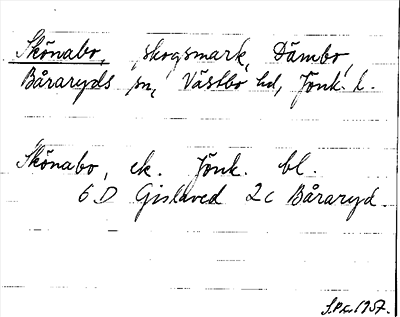 Skönabo, skogsmark, Dämbo,
Båraryds sn, Västbo hd, Jönk. l.
Skönabo, ek. Jönk. bl.
6 D Gislaved 2c Båraryd.
1957.